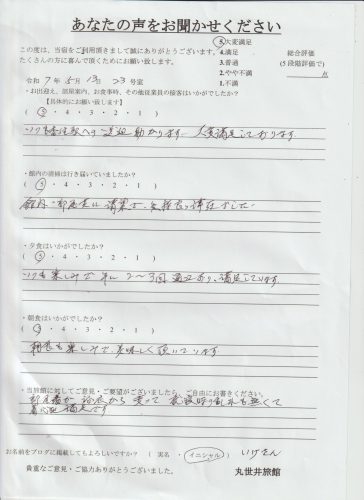 あなたの声をお聞かせください
この度は、当宿をご利用頂きまして誠にありがとうございます。
たくさんの方に喜んで頂くためにお願い致します。
5.大変満足
4.満足
3.普通
2.やや不満
1.不満
総合評価
(5段階評価で)
点
令和 7年 5月 13日 23号室
・お出迎え、部屋案内、お食事時、その他従業員の接客はいかがでしたか?
【具体的にお願い致します】
( 5 ・ 4 ・ 3 ・ 2 ・ 1 )
送迎 助かります 大変満足しております
・館内の清掃は行き届いていましたか?
( 5 ・ 4 ・ 3 ・ 2 ・ 1 )
館内・部屋共に清潔で、気持良く滞在
・夕食はいかがでしたか?
( 5 ・ 4 ・ 3 ・ 2 ・ 1 )
いつも楽しみで 年に2〜3回 満足しています
・朝食はいかがでしたか?
( 5 ・ 4 ・ 3 ・ 2 ・ 1 )
朝食も楽しみで、美味しく頂いています
・当旅館に対してご意見・ご要望がございましたら、ご自由にお書きください。
部屋着が浴衣から変って 就寝時の乱れも無くて
満足です
お名前をブログに掲載してもよろしいですか? ( 実名 ・ イニシャル )
貴重なご意見・ご協力ありがとうございました。 丸世井旅館